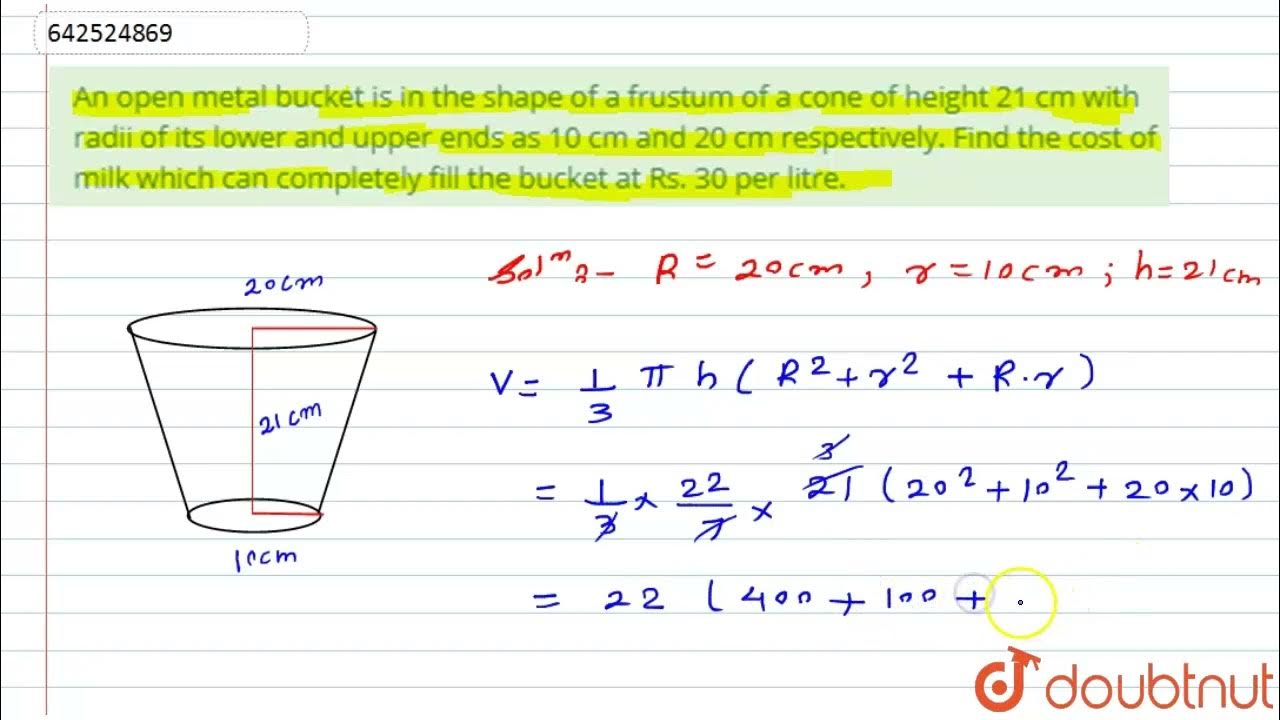 642524869
An open metal bucket is in the shape of a frustum of a cone of height 21 cm with
radii of its lower and upper ends as 10 cm and 20 cm respectively. Find the cost of
milk which can completely fill the bucket at Rs. 30 per litre.
Solⁿ:- R = 20cm, r = 10cm; h = 21cm
20cm
V = 1/3 π h (R² + r² + R.r)
21cm
= 1/3 × 22/7 × 21 3 (20² + 10² + 20×10)
10cm
= 22 (400 + 100 +
doubtnut